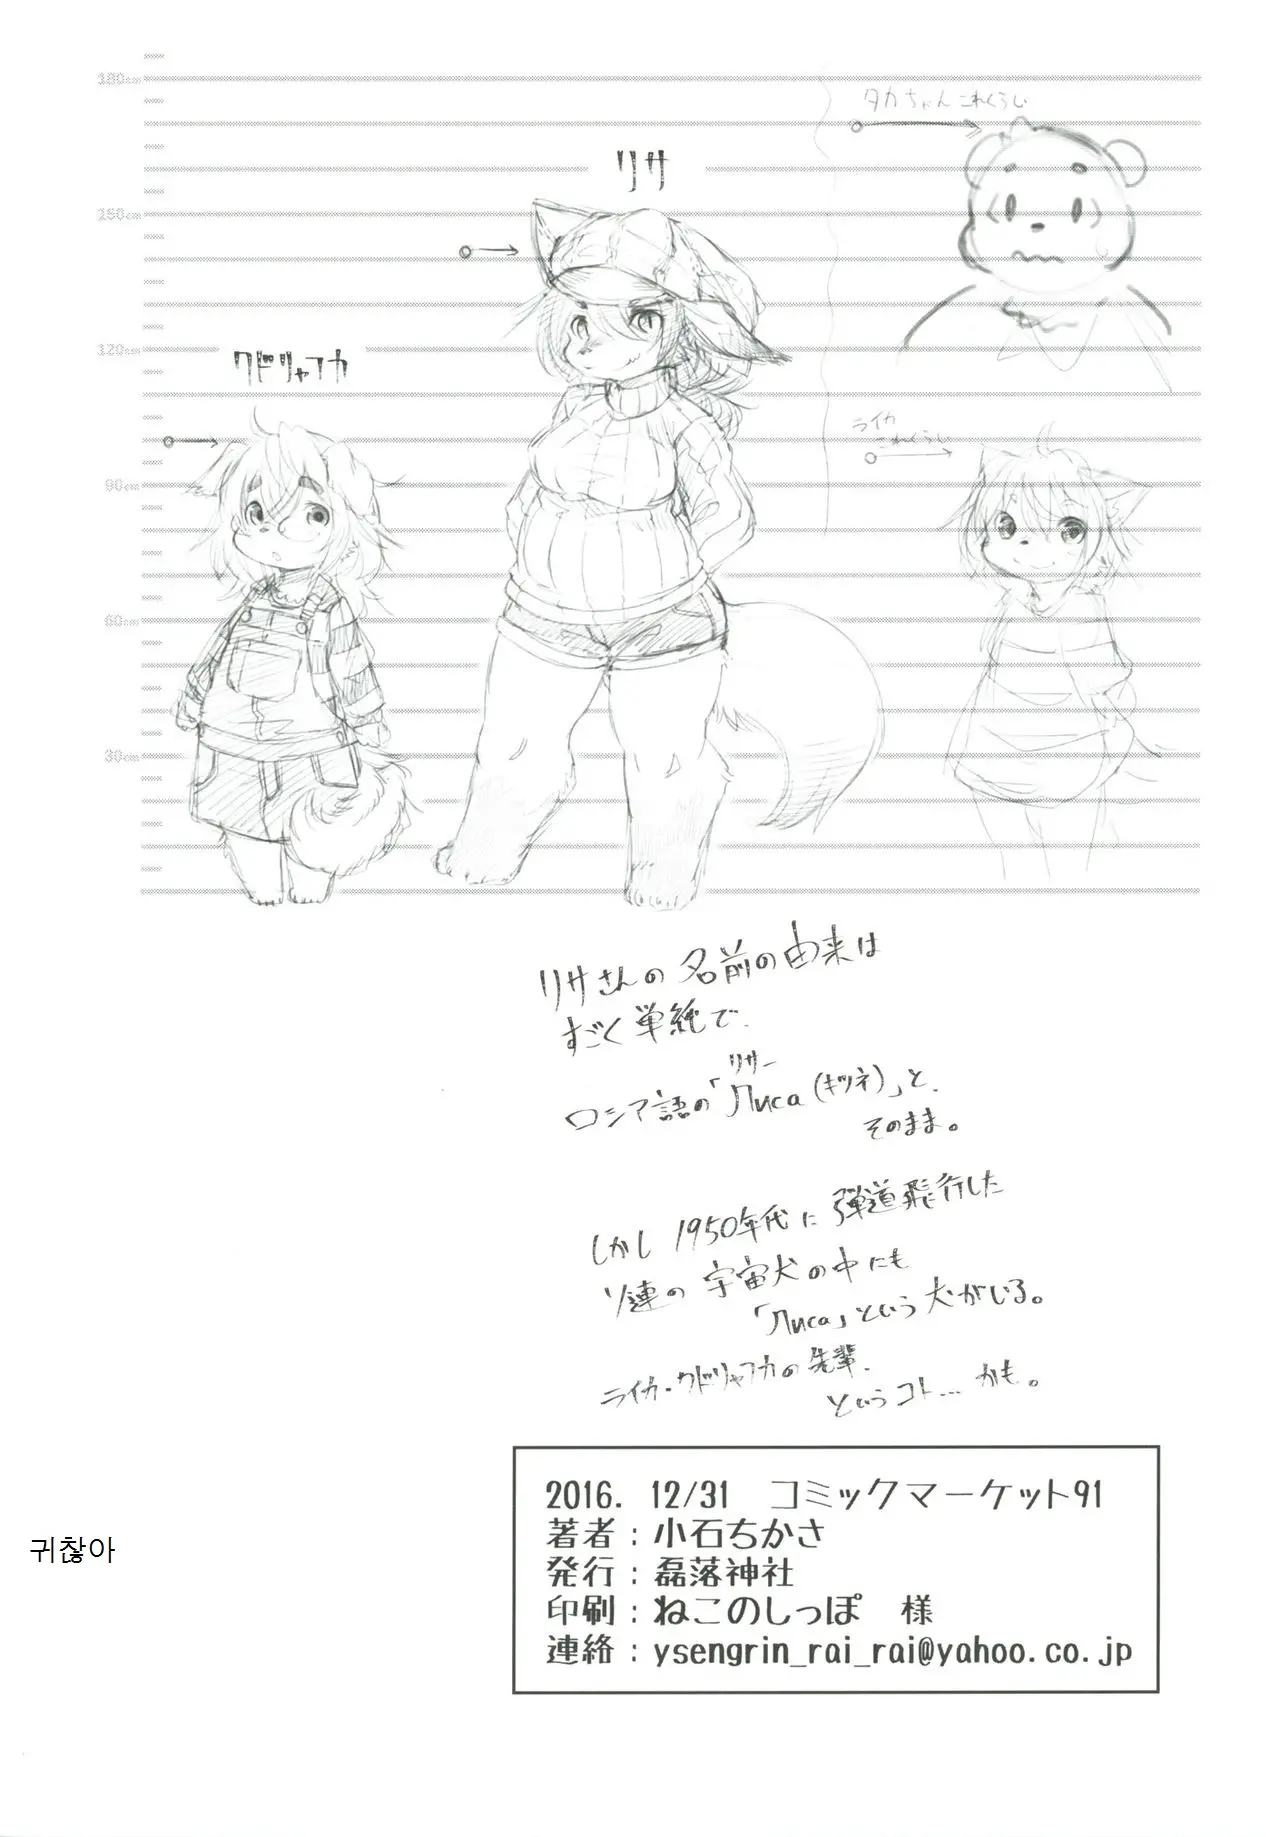 180cm
タカちゃん これくらい
リサ
150cm
120cm
クドリャフカ
ライカ
これくらい
90cm
60cm
30cm
リサさんの名前の由来は
すごく単純で、
リサー
ロシア語の「Лиса(キツネ)」と、
そのまま。
しかし1950年代に弾道飛行した
ソ連の宇宙犬の中にも
「Лиса」という犬がいる。
ライカ・クドリャフカの先輩、
というコト…かも。
2016. 12/31 コミックマーケット91
著者：小石ちかさ
発行：磊落神社
印刷：ねこのしっぽ 様
連絡：ysengrin_rai_rai@yahoo.co.jp
귀찮아